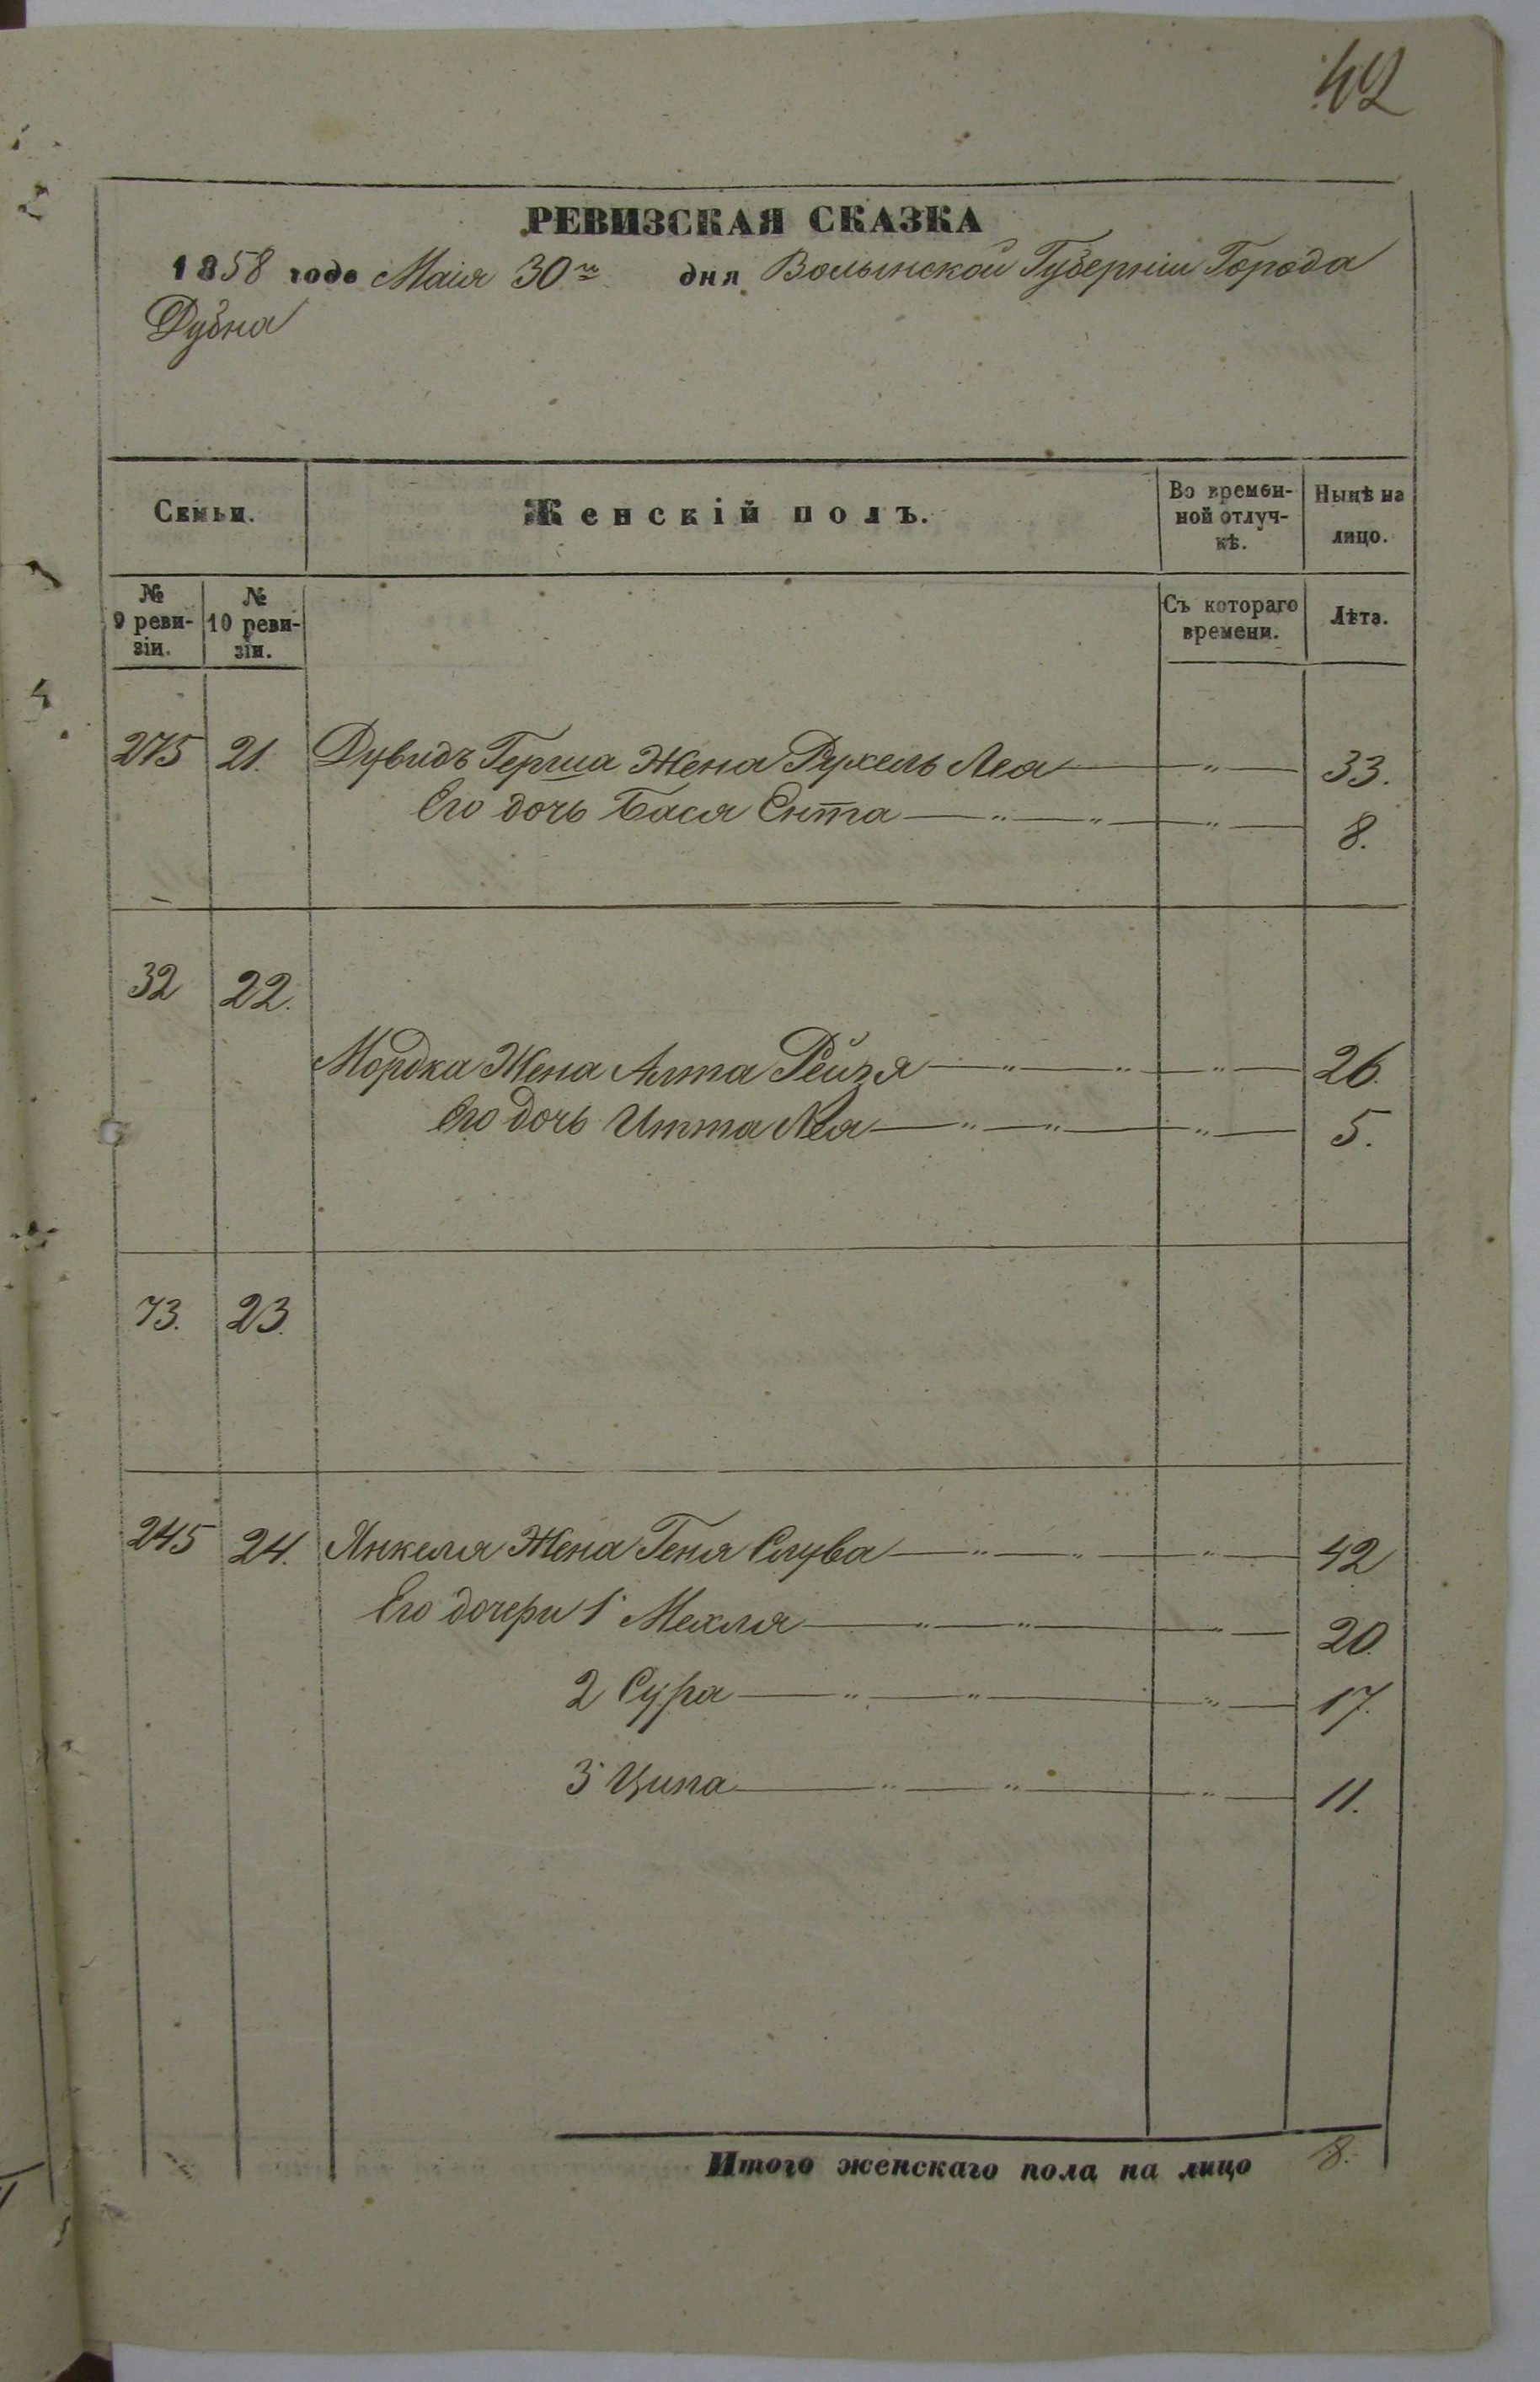 42
РЕВИЗСКАЯ СКАЗКА
1858 года Маія 30го дня Волынской Губерніи Города
Дубна
Семьи. Женскій полъ. Во времен-ной отлуч-кѣ. Нынѣ на лицо.
№ 9 реви-зіи. № 10 реви-зіи. Съ котораго времени. Лѣта.
275 21. Дувидъ Герша Жена Рухель Леа — " — 33.
Его дочь Бася Ента — " — " — " — 8.
32 22.
Мордка Жена Алта Рейзя — " — " — " — 26.
Его дочь Итта Лея — " — " — " — 5.
73. 23.
245 24. Янкеля Жена Геня Слува — " — " — " — 42
Его дочери 1 Мехля — " — " — " — 20.
2 Сура — " — " — " — 17.
3 Ципа — " — " — " — 11.
Итого женскаго пола на лицо 8.